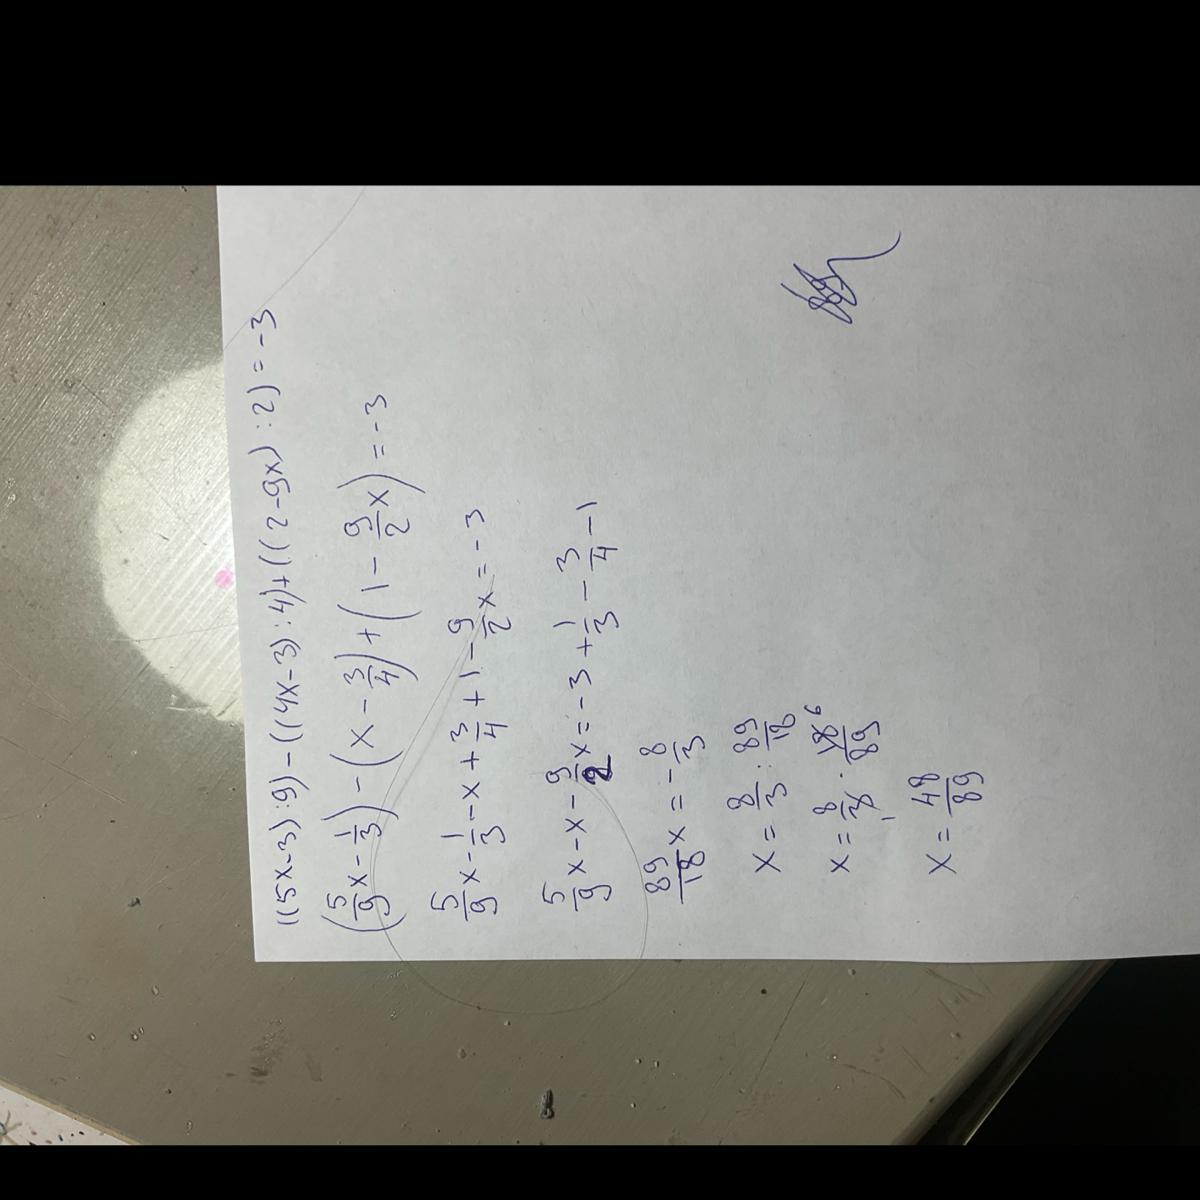 ((5x-3):9)-((4x-3):4)+((2-9x):2)=-3
(5/9x-1/3)-(x-3/4)+(1-9/2x)=-3
5/9x-1/3-x+3/4+1-9/2x=-3
5/9x-x-9/2x=-3+1/3-3/4-1
89/18x=-8/3
x=8/3:89/18
x=8/3·18/89 6 1
x=48/89